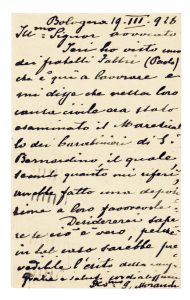 Bologna 19-III-928
Ill.mo Signor avvocato
Ieri ho visto uno
dei fratelli Fabbri (Paolo)
che è qui a lavorare e
mi dice che nella loro
causa civile era stato
esaminato il Marescial
lo dei Carabinieri di S.
Bernardino, il quale
secondo quanto mi riferì,
avrebbe fatto una deposi
zione a loro favorevole.
Desidererei sape
re se ciò è vero perchè
in tal caso sarebbe pre
vedibile l'esito della causa
Grazie e saluti cordialissimi